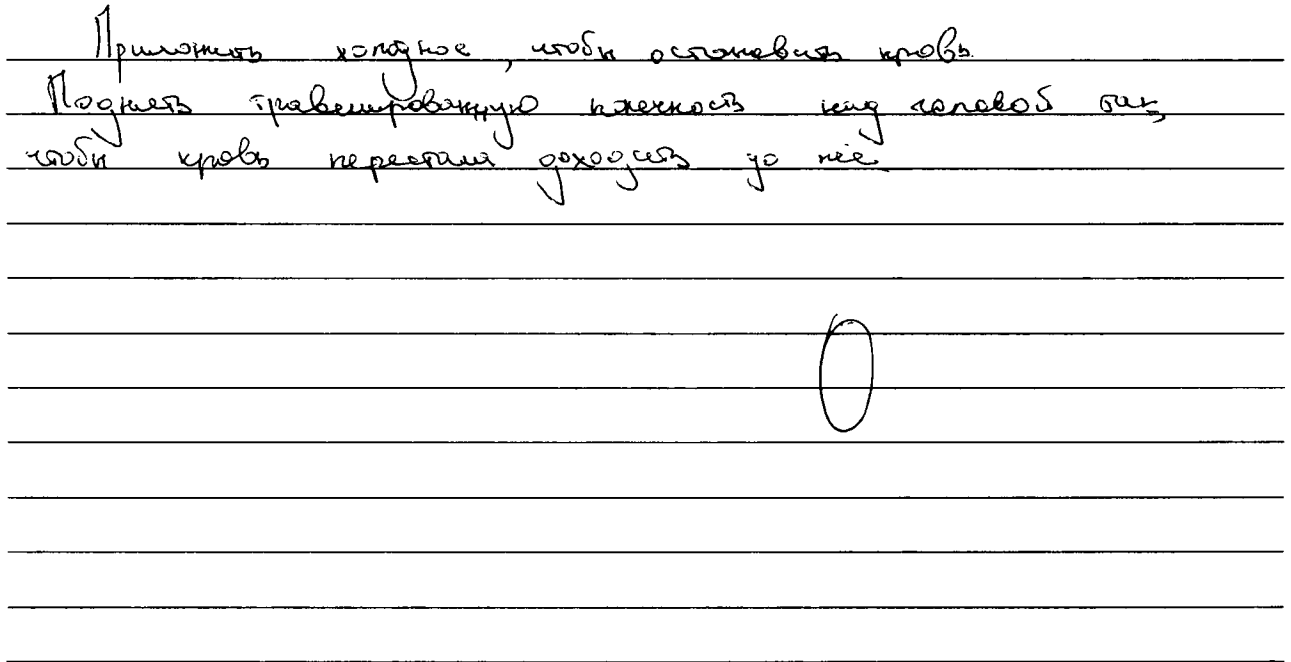 Приложить холодное, чтобы остановить кровь.
Поднять травмированную конечность над головой так,
чтобы кровь перестала доходить до неё